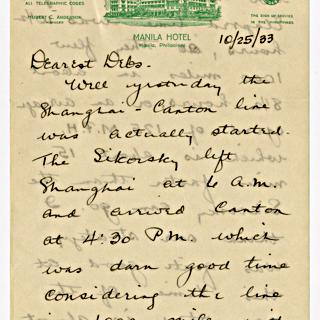 ALL TELEGRAPHIC CODES
HUBERT C. ANDERSON
MANAGER
MANILA HOTEL
Manila, Philippines
THE SIGN OF SERVICE
IN THE PHILIPPINES
10/25/33
Dearest Debs.
Well yesterday the
Shanghai - Canton line
was actually started.
The Sikorsky left
Shanghai at 6 A.M.
and arrived Canton
at 4:30 P.M. which
was darn good time
considering the line